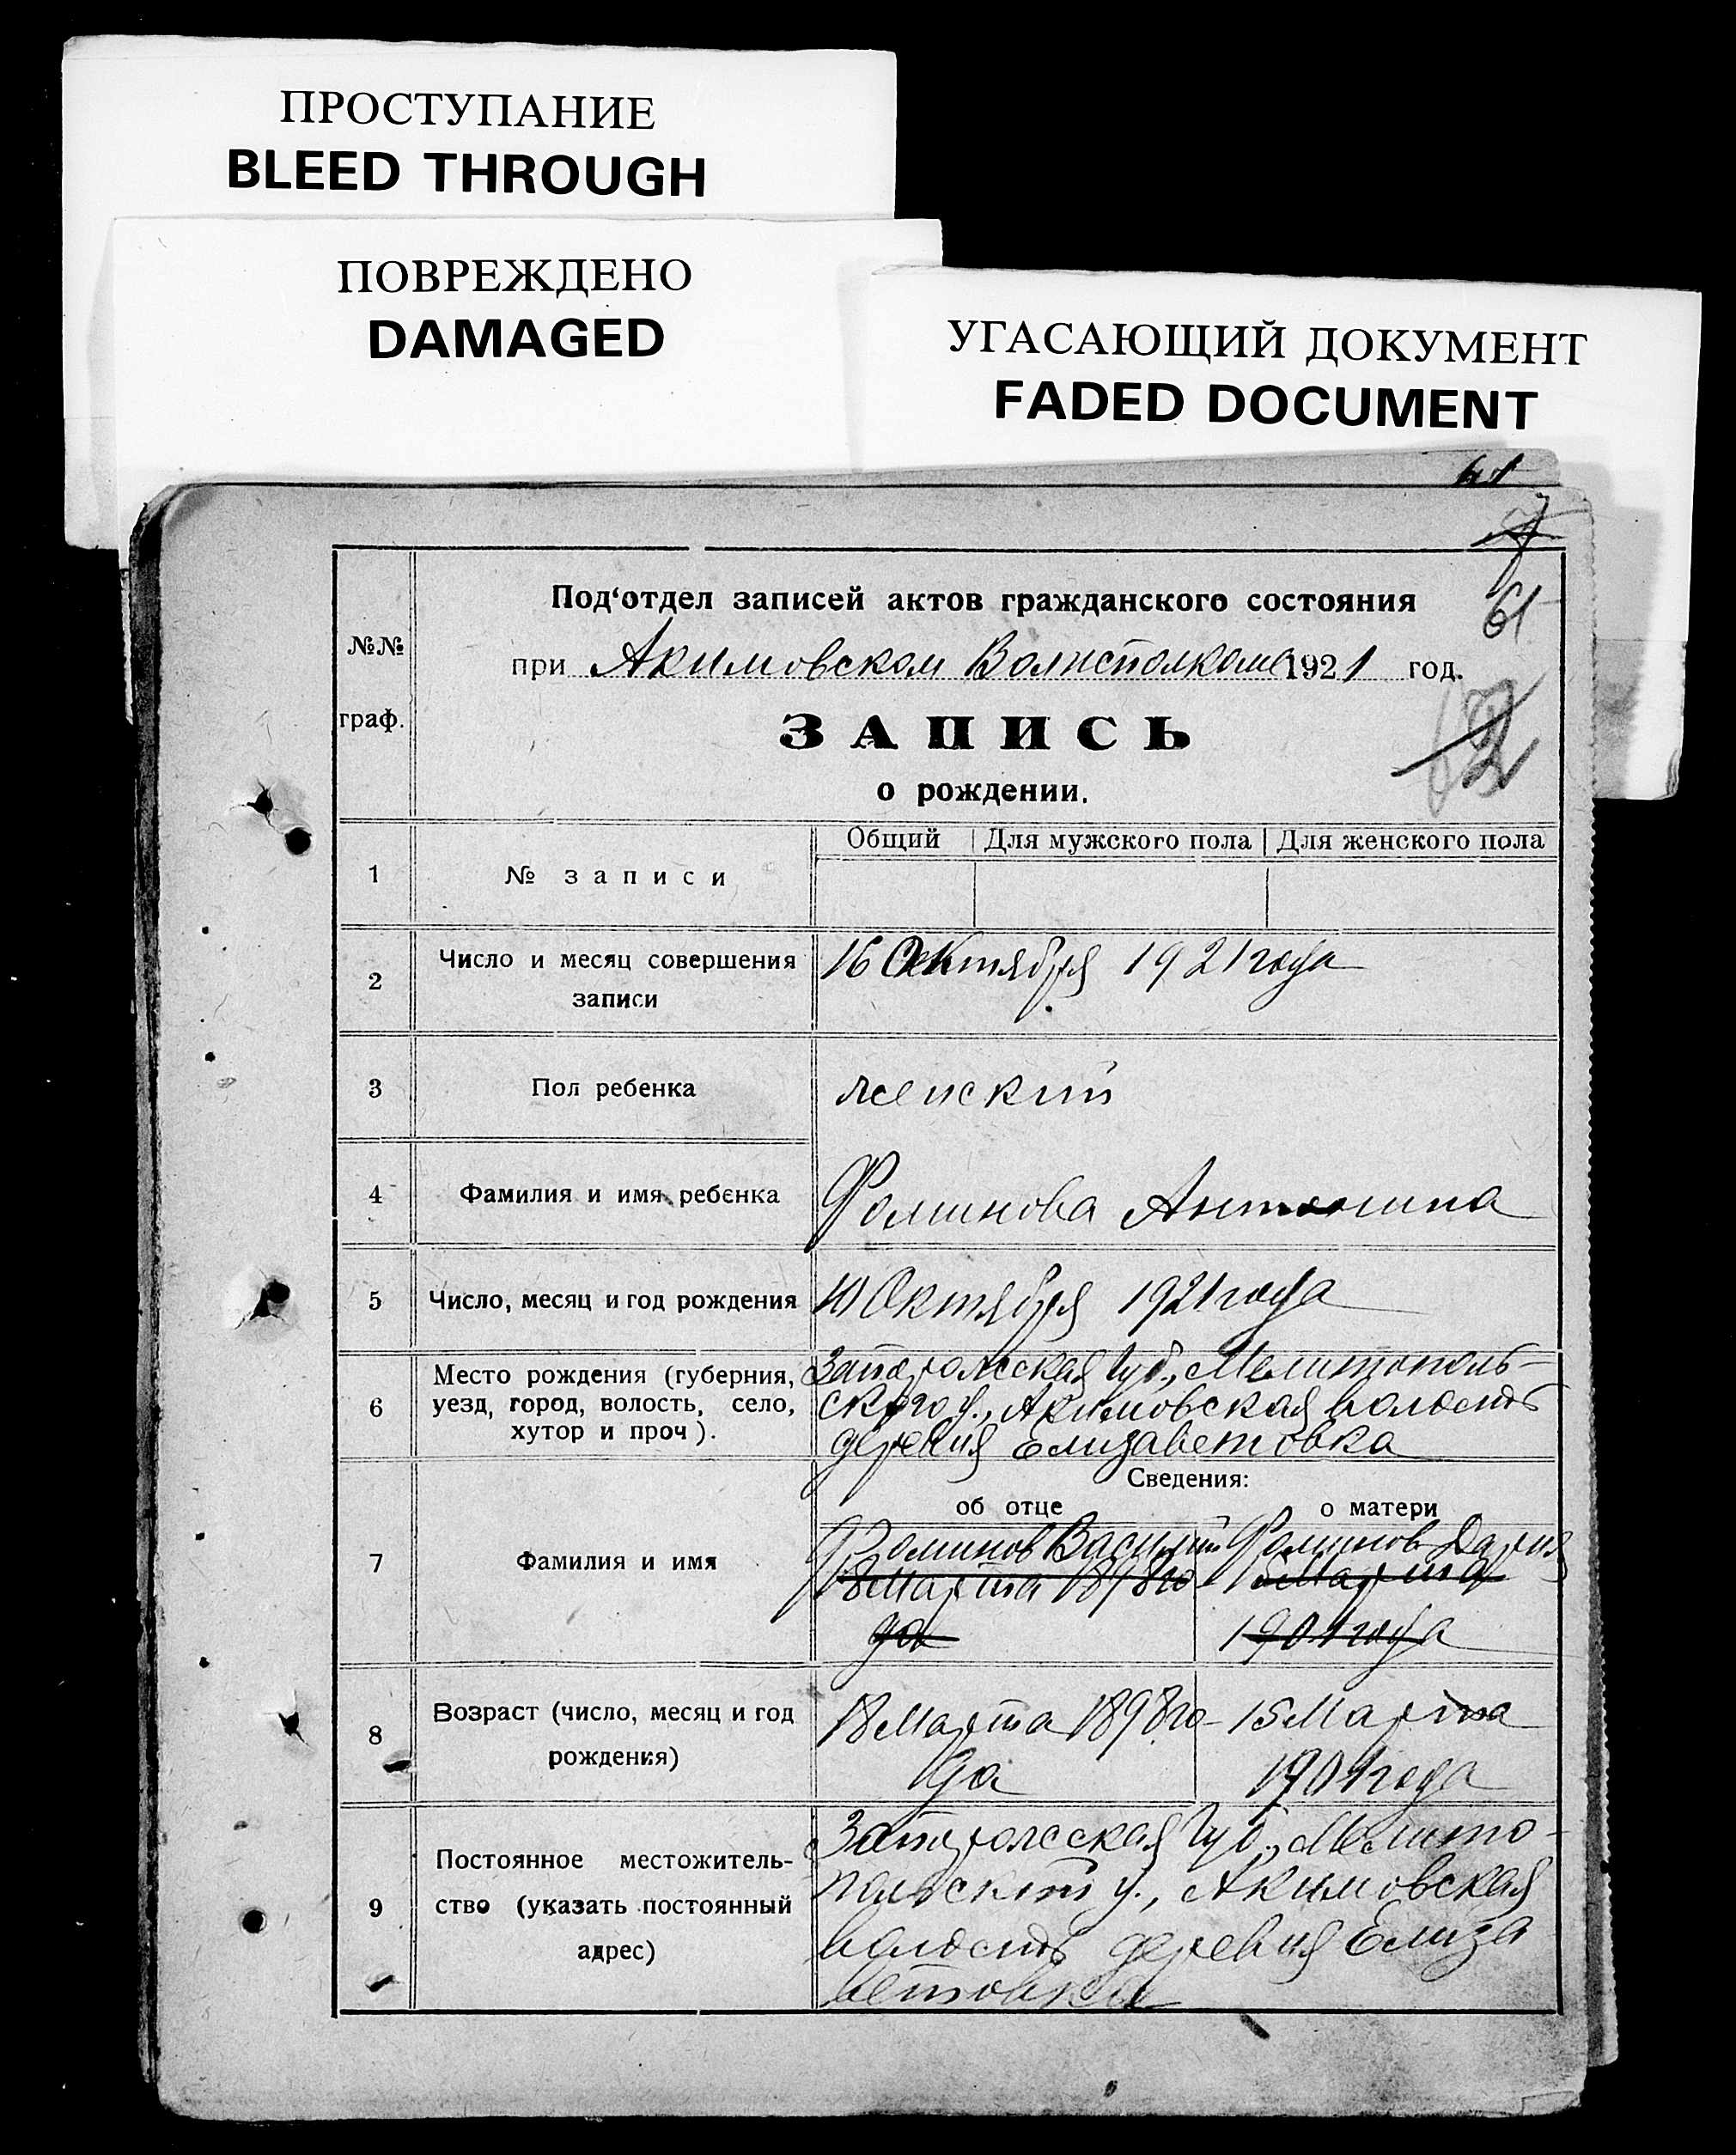 ПРОСТУПАНИЕ
BLEED THROUGH
ПОВРЕЖДЕНО
DAMAGED
УГАСАЮЩИЙ ДОКУМЕНТ
FADED DOCUMENT
61
№№
граф.
Под‘отдел записей актов гражданского состояния
при Акимовском Волисполкоме 1921 год.
ЗАПИСЬ
о рождении.
Общий Для мужского пола Для женского пола
1 № записи
2 Число и месяц совершения
записи
16 Октября 1921 года
3 Пол ребенка женский
4 Фамилия и имя ребенка Фоминова Антонина
5 Число, месяц и год рождения 10 Октября 1921 года
6 Место рождения (губерния,
уезд, город, волость, село,
хутор и проч).
Запорожская Губ., Мелитополь-
ского у., Акимовская волость
деревня Елизаветовка
Сведения:
об отце о матери
7 Фамилия и имя
Фоминов Василий Фоминов Дария
18 Марта 1898 го- 15 Марта
да 1901 года
8 Возраст (число, месяц и год
рождения)
18 Марта 1898 го- 15 Марта
да 1901 года
9 Постоянное местожитель-
ство (указать постоянный
адрес)
Запорожская Губ., Мелито-
польский у., Акимовская
волость деревня Елиза
ветовка